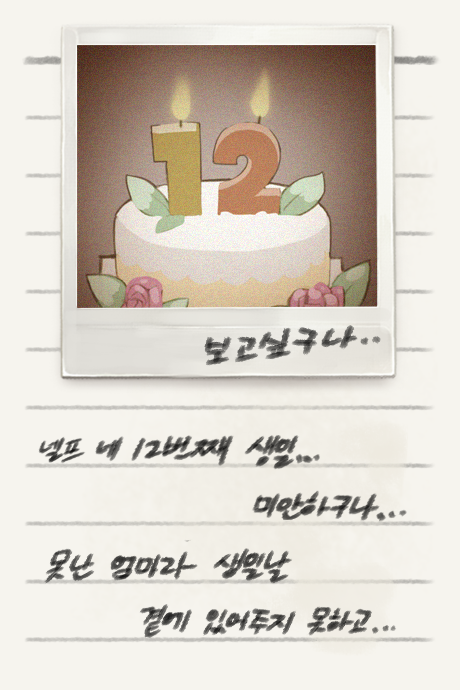 12
보고싶구나..
넬프 네 12번째 생일...
미안하구나...
못난 엄마라 생일날
곁에 있어주지 못하고...